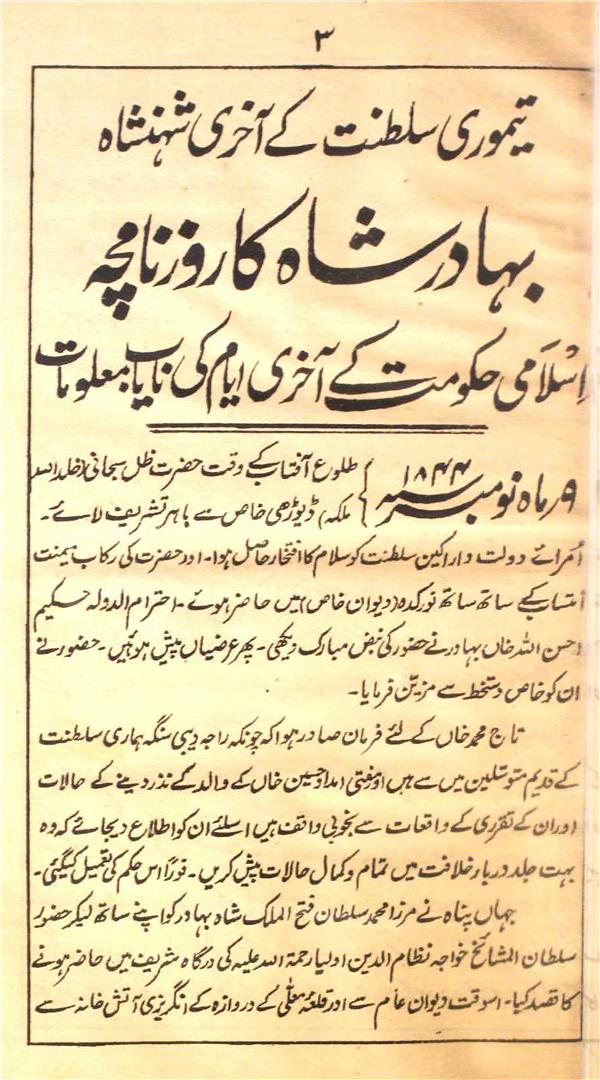 ۳
تیموری سلطنت کے آخری شہنشاہ
بہادر شاہ کا روزنامچہ
اِسْلَامی حکومت کے آخری ایام کی نایاب معلومات
۹ر ماہ نومبر ۱۸۴۴ء
طلوع آفتاب کے وقت حضرت ظل سبحانی (خلد اللہ
ملکہ) ڈیوڑھی خاص سے باہر تشریف لائے۔
اُمرائے دولت و اراکین سلطنت کو سلام کا افتخار حاصل ہوا۔ اور حضرت کی رکاب یمنت
انتساب کے ساتھ ساتھ نورکدہ (دیوان خاص) میں حاضر ہوئے۔ احترام الدولہ حکیم
احسن اللہ خاں بہادر نے حضور کی نبض مبارک دیکھی۔ پھر عرضیاں پیش ہوئیں۔ حضور نے
ان کو خاص دستخط سے مزیّن فرمایا۔
تاج محمد خاں کے لئے فرمان صادر ہوا کہ چونکہ راجہ دیبی سنگہ ہماری سلطنت
کے قدیم متوسلین میں سے ہیں اور مفتی امداد حسین خاں کے والد کے نذر دینے کے حالات
اور ان کے تقرری کے واقعات سے بخوبی واقف ہیں اسلئے ان کو اطلاع دیجائے کہ وہ
بہت جلد دربار خلافت میں تمام و کمال حالات پیش کریں۔ فوراً اس حکم کی تعمیل کیگئی۔
جہاں پناہ نے مرزا محمد سلطان فتح الملک شاہ بہادر کو اپنے ساتھ لیکر حضور
سلطان المشائخ خواجہ نظام الدین اولیا رحمۃ اللہ علیہ کی درگاہ شریف میں حاضر ہونے
کا قصد کیا۔ اسوقت دیوان عام سے اور قلعۂ معلّٰی کے دروازہ کے انگریزی آتش خانہ سے